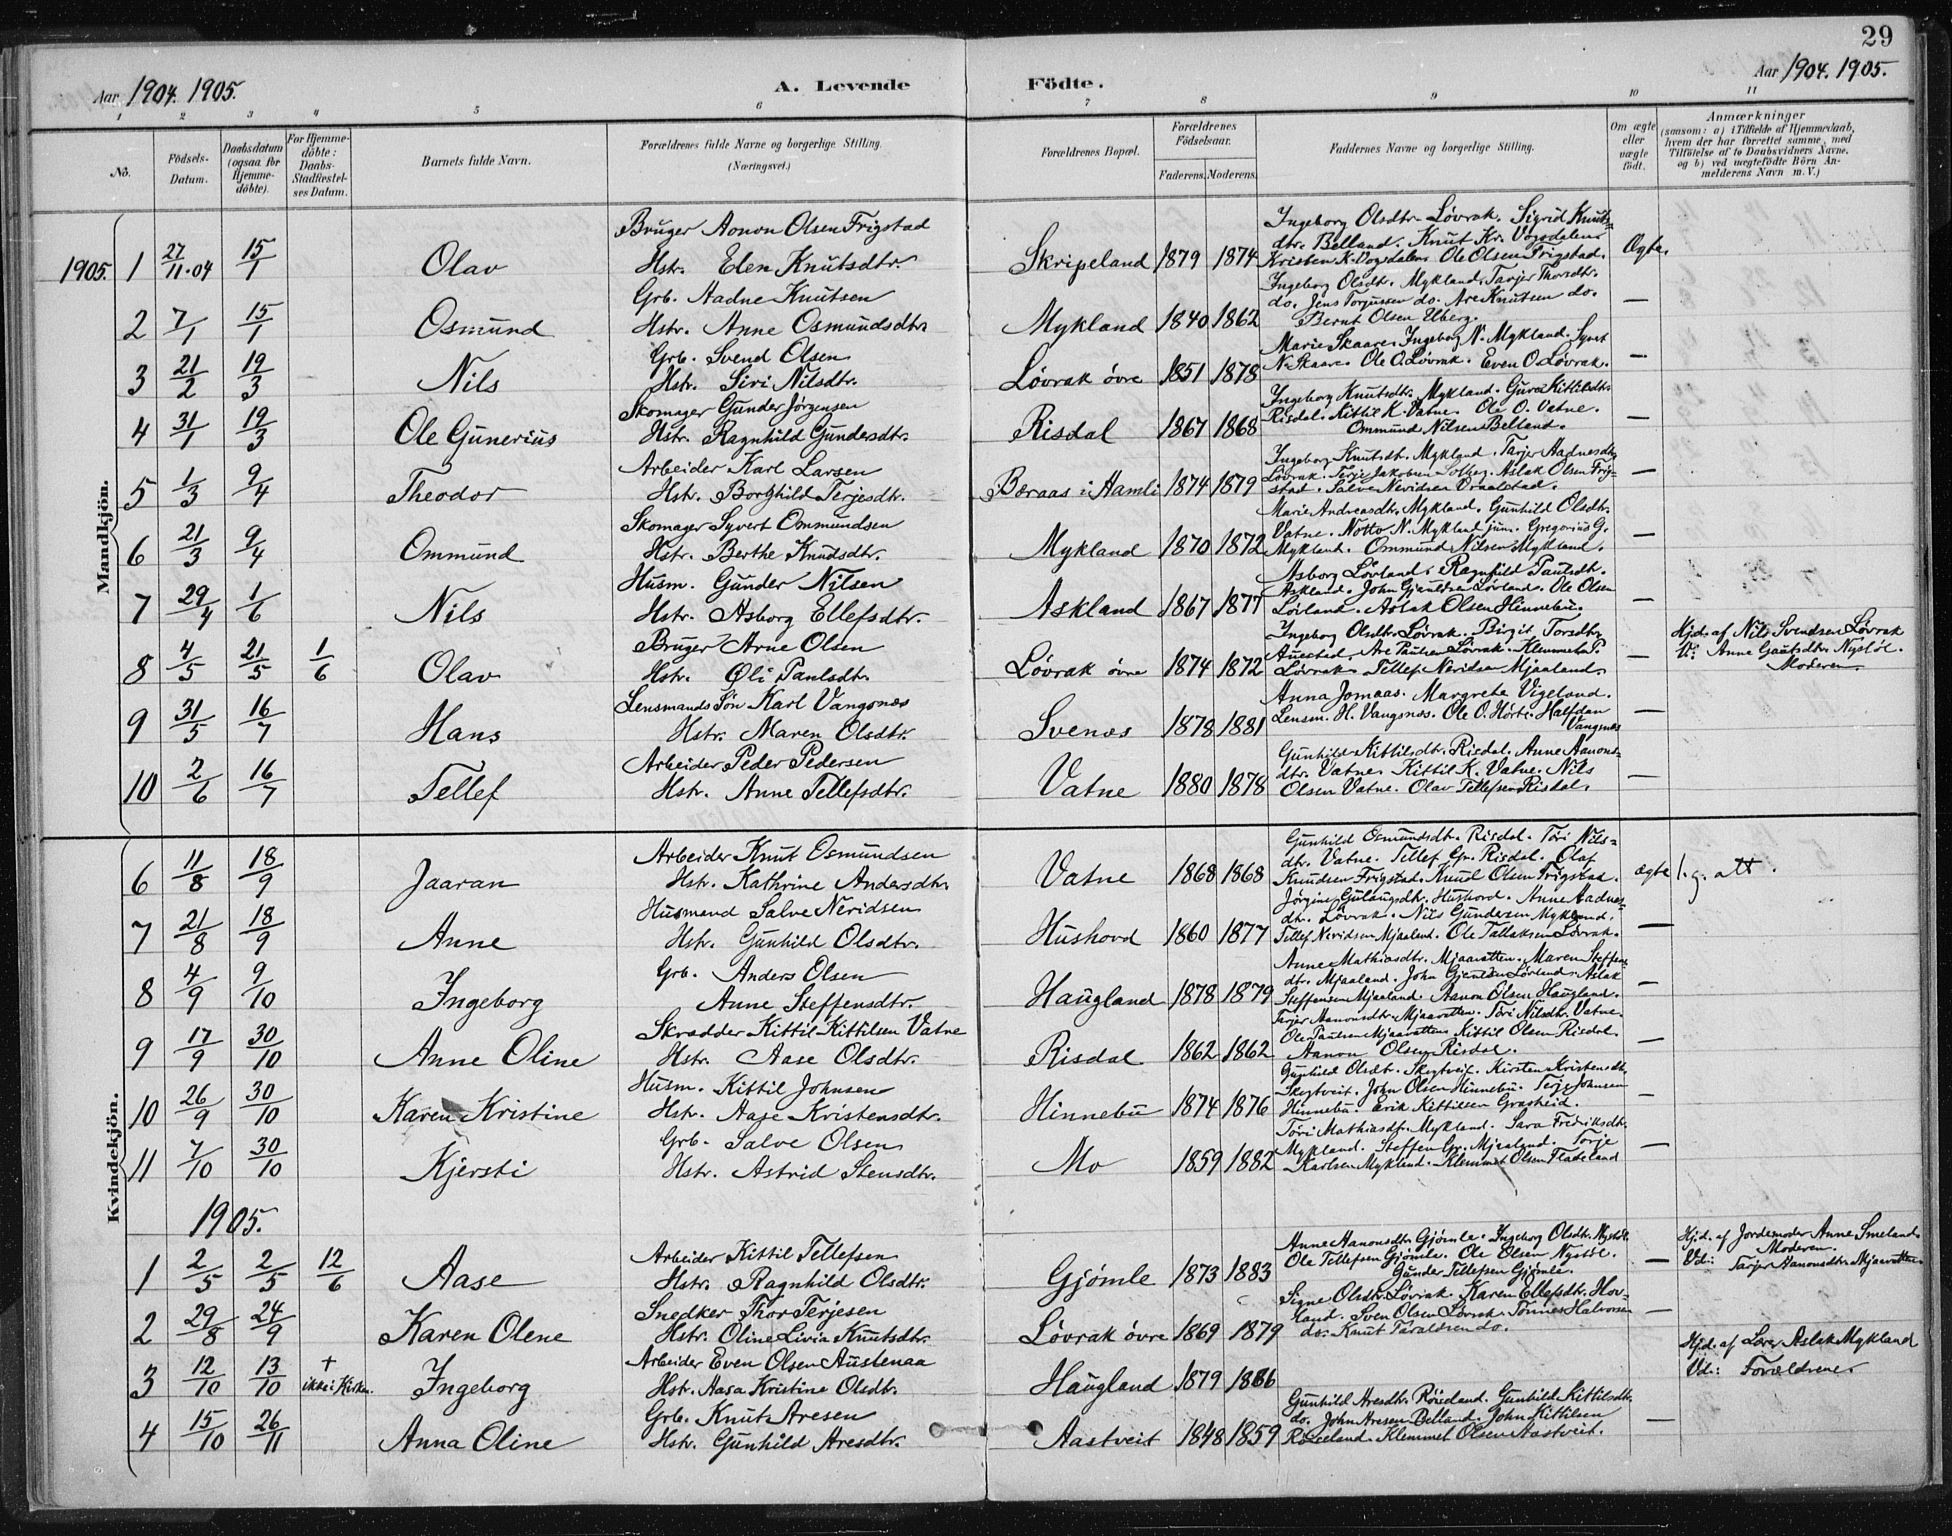 29
Aar 1904. 1905.
A. Levende Födte.
Aar 1904. 1905.
1 2 3 4 5 6 7 8 9 10 11
No.
Födsels-Datum.
Daabsdatum (ogsaa for Hjemme-döbte).
For Hjemme-döbte: Daabs-Stadfæstel-ses Datum.
Barnets fulde Navn.
Forældrenes fulde Navne og borgerlige Stilling. (Næringsvei.)
Forældrenes Bopæl.
Forældrenes Födselsaar.
Faderens. Moderens.
Faddernes Navne og borgerlige Stilling.
Om ægte eller uægte födt.
Anmærkninger
(saasom: a) i Tilfælde af Hjemmedaab, hvem der har forrettet samme, med Tilföielse af to Daabsvidners Navne, og b) ved uægtefödte Börn An-melderens Navn m. V.)
Mandkjön.
1905. 1 27/11.04 15/1 Olav
Bruger Aonon Olsen Frigstad
Hstr. Elen Knutsdtr.
Skripeland 1879 1874
Ingeborg Olsdtr. Løvrak. Sigrid Knuts=
dtr. Belland. Knut Kr. Vogsdalen
Kristen K. Vogsdalen Ole Olsen Frigstad.
Ægte.
2 7/1 15/1 Osmund
Grb. Aadne Knutsen
Hstr. Anne Osmundsdtr.
Mykland 1840 1862
Ingeborg Olsdt. Mykland. Tarjer Thorsdtr.
do. Jens Torjussen do. Are Knutsen do.
Bernt Olsen Uberg.
—
3 21/2 19/3 Nils
Grb. Svend Olsen
Hstr. Siri Nilsdtr.
Løvrak øvre 1851 1878
Marie Skaare. Ingeborg N. Mykland. Syvert
N. Skaare. Ole O. Løvrak. Even O. Løvrak.
—
4 31/1 19/3 Ole Gunerius
Skomager Gunder Jørgensen
Hstr. Ragnhild Gundersdtr.
Risdal 1867 1868
Ingeborg Knutsdtr. Mykland. Guro Kittilsdtr.
Risdal. Kittil K. Vatne. Ole O. Vatne.
Ommund Nilsen Belland.
—
5 1/3 9/4 Theodor
Arbeider Karl Larsen
Hstr. Borghild Terjesdtr.
Bæraas i Aamli 1874 1879
Ingeborg Knutsdt. Mykland. Tarjer Aadnesdtr.
Løvrak. Terje Jakobsen Solberg. Aslak Olsen Frig-
stad. Salve Neridsen
—
6 21/3 9/4 Ommund
Skomager Syvert Ommundsen
Hstr. Berthe Knudsdtr.
Mykland 1870 1872
Marie Andreasdtr. Mykland. Gunhild Olsdtr.
Vatne. Notto N. Mykland jun. Gregorius G.
Mykland. Ommund Nilsen Mykland.
—
7 29/4 1/6 Nils
Husm. Gunder Nilsen
Hstr. Asborg Ellefsdtr.
Askland 1867 1877
Asborg Løvland. Ragnhild Paulsdt.
Askland. John Gjeruldsen Løvland. Ole Olsen
Løvland. Aslak Olsen Hinnebu.
—
8 4/5 21/5 1/6 Olav
Bruger Arne Olsen
Hstr. Øli Paulsdtr.
Løvrak øvre 1874 1872
Ingeborg Olsdtr. Løvrak. Birgit Torsdtr.
Auestad. Are Paulsen Løvrak. Klemmet P.
Løvrak. Tellef Neridsen Mjaaland.
—
Hjd. af Nils Svendsen Løvrak
V: Anne Gautsdtr. Nystøl.
Moderen
9 31/5 16/7 Hans
Lensmands Søn Karl Vangsnes
Hstr. Maren Olsdtr.
Svenes 1878 1881
Anna Jomaas. Margrete Vigeland.
Lensm. H. Vangsnes. Ole O. Hørte. Halfdan
Vangsnes
—
10 2/6 16/7 Tellef
Arbeider Peder Pedersen
Hstr. Anne Tellefsdtr.
Vatne 1880 1878
Gunhild Kittilsdtr. Risdal. Anne Aanons-
dtr. Vatne. Kittil K. Vatne. Nils
Olsen Vatne. Olav Tellefsen Risdal.
—
Kvindekjön.
6 11/8 18/9 Jaaran
Arbeider Knut Osmundsen
Hstr. Kathrine Andersdtr.
Vatne 1868 1868
Gunhild Osmundsdtr. Risdal. Tori Nils=
dtr. Vatne. Tellef Gr. Risdal. Olaf
Knudsen Frigstad. Knud Olsen Frigstad.
ægte
7 21/8 18/9 Anne
Husmand Salve Neridsen
Hstr. Gunhild Olsdtr.
Hushovd 1860 1877
Jørgine Gulaugsdtr. Hushovd. Anne Aadnes=
dtr. Løvrak. Nils Gundersen Mykland.
Tellef Neridsen Mjaaland. Ole Tallaksen Løvrak.
—
8 4/9 9/10 Ingeborg
Grb. Anders Olsen
Anne Steffensdtr.
Haugland 1878 1879
Anne Mathiasdtr. Mjaavatten. Maren Steffens-
dtr. Mjaaland. John Gjeruldsen Løvland. Aslak
Steffensen Mjaaland. Aanon Olsen Haugland.
—
9 17/9 30/10 Anne Oline
Skrædder Kittil Kittilsen Vatne
Hstr. Aase Olsdtr.
Risdal 1862 1862
Tarjer Aanonsdtr. Mjaavatten. Tori Nilsdtr. Vatne.
Ole Paulsen Mjaavatten. Kittil Olsen Risdal.
Aanon Olsen Risdal.
—
10 26/9 30/10 Karen Kristine
Husm. Kittil Johnsen
Hstr. Aase Kristensdtr.
Hinnebu 1874 1876
Gunhild Olsdt. Skegtveit. Kirsten Kristensdtr.
Skegtveit. John Olsen Hinnebu. Terje Johnsen
Hinnebu. Erik Kittilsen Grasheid.
—
11 7/10 30/10 Kjersti
Grb. Salve Olsen
Hstr. Astrid Stensdtr.
Mo 1859 1882
Tori Mathiasdt. Mykland. Sara Fredriksdtr.
Mykland. Steffen Gr. Mjaaland. Torje
Karlsen Mykland. Klemmet Olsen Fladeland
—
1905.
1 2/5 2/5 12/6 Aase
Arbeider Kittil Tellefsen
Hstr. Ragnhild Olsdtr.
Gjømle 1873 1883
Anne Aanonsdtr. Gjømle. Ingeborg Olsdtr. Nystøl.
Ole Tellefsen Gjømle. Ole Olsen Nystøl.
Gunder Tellefsen Gjømle.
—
Hjd. af Jordemoder Anne Smeland.
Moderen.
Vd: Tarjer Aanonsdtr. Mjaavatten.
2 29/8 24/9 Karen Olene
Snedker Thor Terjesen
Hstr. Oline Livia Knutsdtr.
Løvrak øvre 1869 1879
Signe Olsdtr. Løvrak. Karen Ellefsdtr. Hov-
land. Sven Olsen Løvrak. Tønnes Halvorsen
do. Knut Taraldsen do.
—
3 12/10 13/10 + ikke i Kirken. Ingeborg
Arbeider Even Olsen Austenaa
Hstr. Aasa Kristine Olsdtr.
Haugland 1879 1886
Hjd. af Lærer Aslak Mykland
Vd: Forældrene.
4 15/10 26/11 Anna Oline
Grb. Knut Aresen
Hstr. Gunhild Aresdtr.
Aastveit 1848 1859
Gunhild Aresdtr. Røiseland. Gunhild Kittilsdtr.
do. John Aresen Belland. John Kittilsen
Røiseland. Klemmet Olsen Aastveit.
—